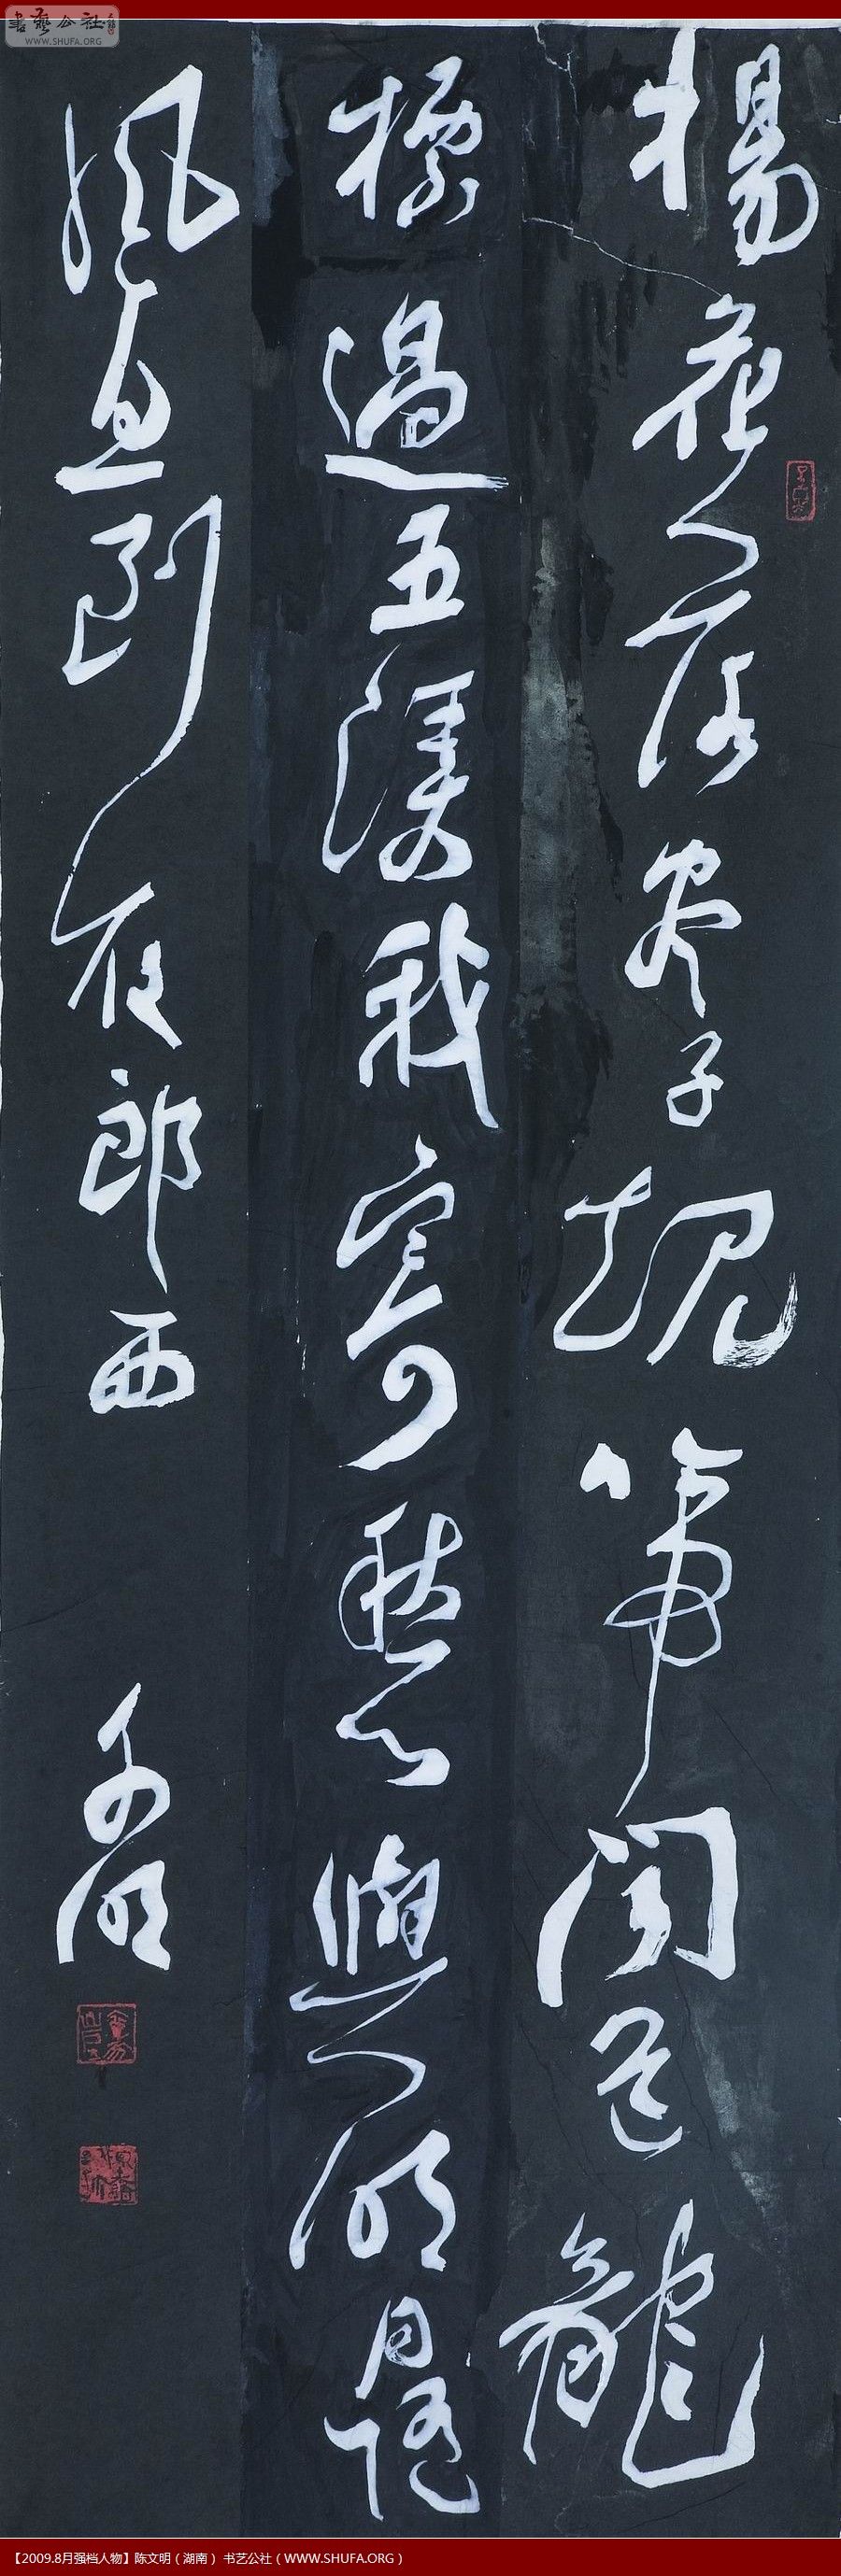 書藝公社
WWW.SHUFA.ORG
楊花落盡子規啼聞道龍
標過五溪我寄愁心與明月隨
風直到夜郎西
文明
【2009.8月强档人物】陈文明（湖南） 书艺公社（WWW.SHUFA.ORG）